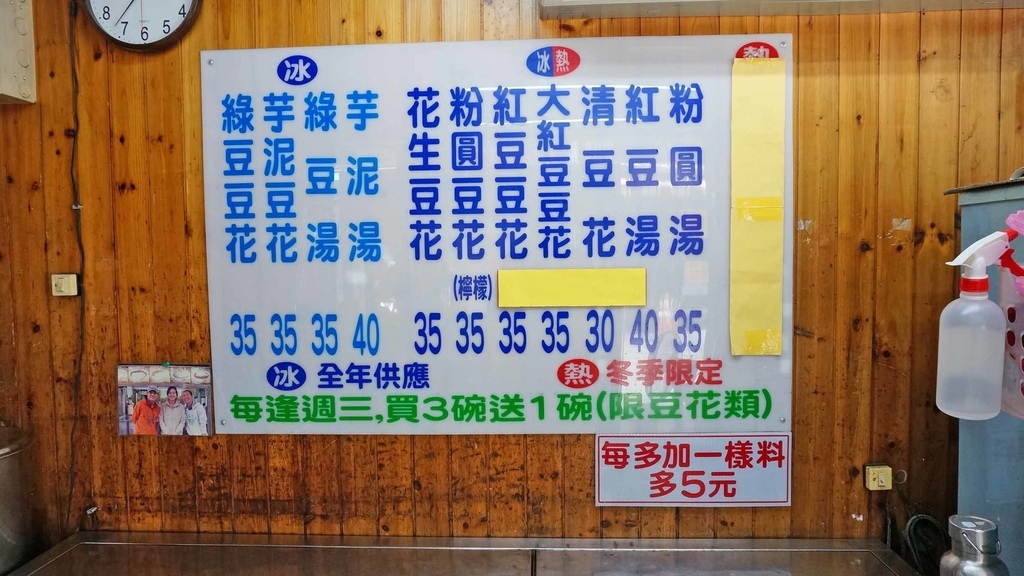 8 7 6 5 4
冰
綠豆豆花
芋泥豆花
綠豆湯
芋泥湯
35 35 35 40
冰熱
花生豆花
粉圓豆花
紅豆豆花
大紅豆豆花
清豆花
紅豆湯
粉圓湯
(檸檬)
35 35 35 35 30 40 35
熱
冰 全年供應
熱 冬季限定
每逢週三,買3碗送1碗(限豆花類)
每多加一樣料
多5元